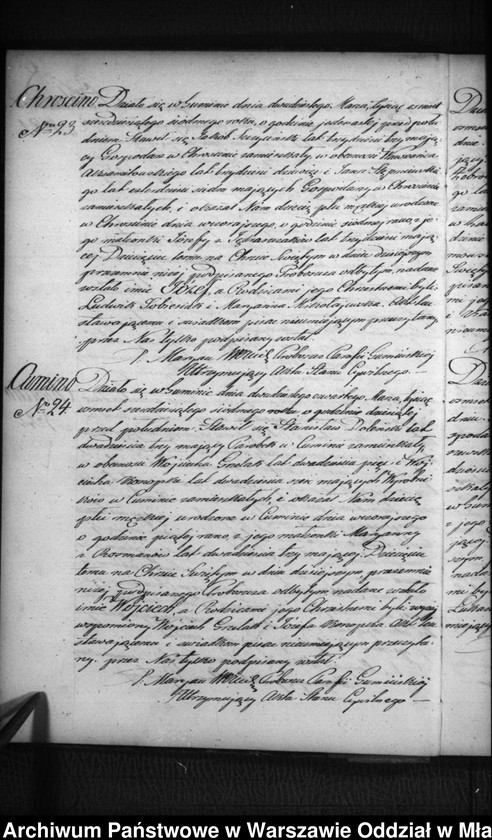 Chroscino Działo się w Guminie dnia dwudziestego, Marca, tysiąc osmset
No 23 sześćdziesiątego siódmego roku, o godzinie jedenastej przed połu-
dniem. Stawił się Jakób lat trzydzieści trzy mają-
cy Gospodarz w Chroscinie zamieszkały, w obecności Wawrzeńca
lat trzydzieści dziewięć i Jana
go lat czterdzieści siedm mających Gospodarzy w Chroscinie
zamieszkałych, i okazał Nam dziecię płci męzkiej urodzone
w Chroscinie dnia wczorajszego, o godzinie siódmej rano z je-
go małżonki Józefy z lat trzydzieści mają-
cej Dziecięciu temu na Chrzcie Świętym w dniu dzisiejszym
przezemnie niżej podpisanego Proboszcza odbytym, nadane
zostało imie Józef, a Rodzicami jego Chrzestnemi byli:
Ludwik i Maryanna Akt ten
stawającemu i świadkom pisać nieumiejącym przeczytany
przez Nas tylko podpisany został.
X. Maryan Proboszcz Parafii Gumińskiej
Utrzymujący Akta Stanu Cywilnego.
Cumino Działo się w Guminie dnia dwudziestego czwartego, Marca, tysiąc
No 24 osmset sześćdziesiątego siódmego roku o godzinie dziesiątej
przed południem. Stawił się Stanisław lat
dwadzieścia trzy mający Parobek w Cuminie zamieszkały,
w obecności Wojciecha lat dwadzieścia pięć i Woj-
ciecha lat dwadzieścia sześć mających Wyrobni-
ków w Cuminie zamieszkałych i okazał Nam dziecię
płci męzkiej urodzone w Cuminie dnia wczorajszego
o godzinie piątej rano z jego małżonki Maryanny
z lat dwadzieścia trzy mającej. Dziecięciu
temu na Chrzcie Świętym w dniu dzisiejszym przezemnie
niżej podpisanego Proboszcza odbytym nadane zostało
imie Wojciech, a Rodzicami jego Chrzestnemi byli: wyżej
wspomniony Wojciech i Józefa Akt ten
stawającemu i świadkom pisać nieumiejącym przeczyta-
ny przez Nas tylko podpisany został.
X. Maryan Proboszcz Parafii Gumińskiej
Utrzymujący Akta Stanu Cywilnego
Archiwum Państwowe w Warszawie Oddział w Mła